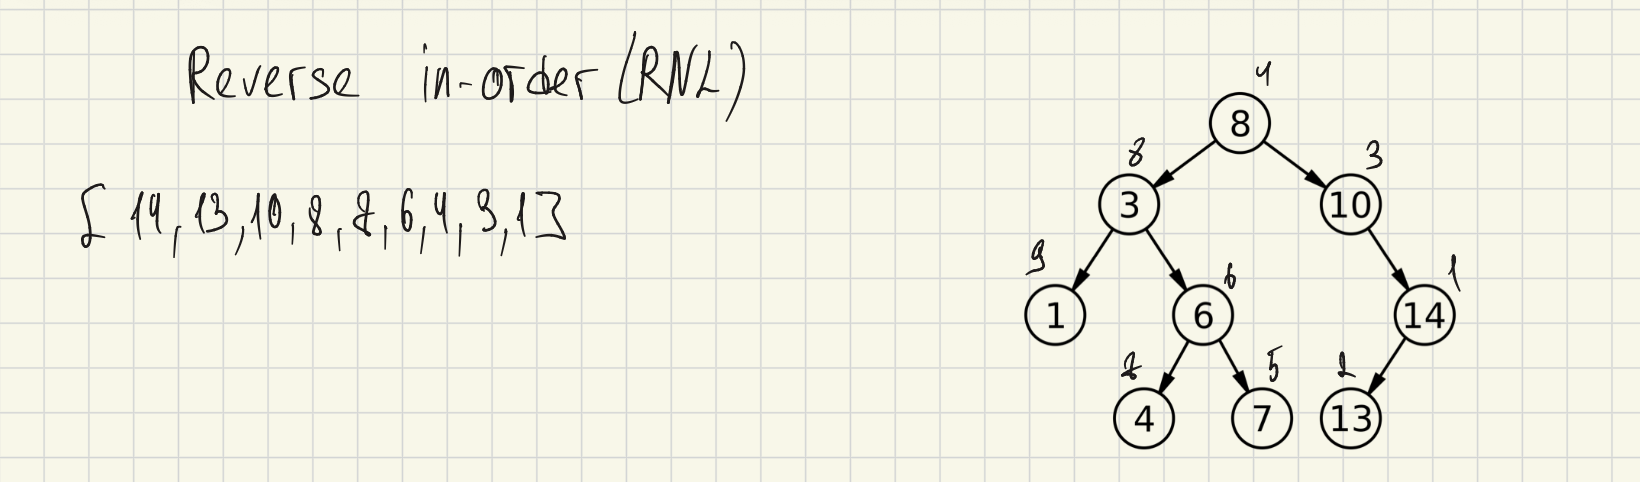 Reverse in-order (RNL)
[14, 13, 10, 8, 7, 6, 4, 3, 1]
4
8
8
3
3
10
9
6
1
1
6
14
7
5
2
4
7
13